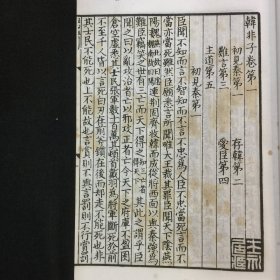 韓非子卷第一
初見秦第一　存韓第二
難言第三　愛臣第四
主道第五
初見秦第一
臣聞不知而言不智知而不言不忠爲人臣不忠當死言而不
當亦當死雖然臣願悉言所聞唯大王裁其罪臣聞天下陰燕
陽魏連荆固齊收韓而成從將西面以與秦強爲
難臣竊笑之世有三亡而天下得之其此之謂乎臣
聞之曰以亂攻治者亡以邪攻正者亡今天下之府庫不盈囷
倉空虛悉其士民張軍數十百萬其頓首戴羽爲將軍斷死於前
不至千人皆以言死白刃在前斧鑕在後而却走不能死也非
其士民不能死也上不能故也言賞則不與言罰則不行賞罰